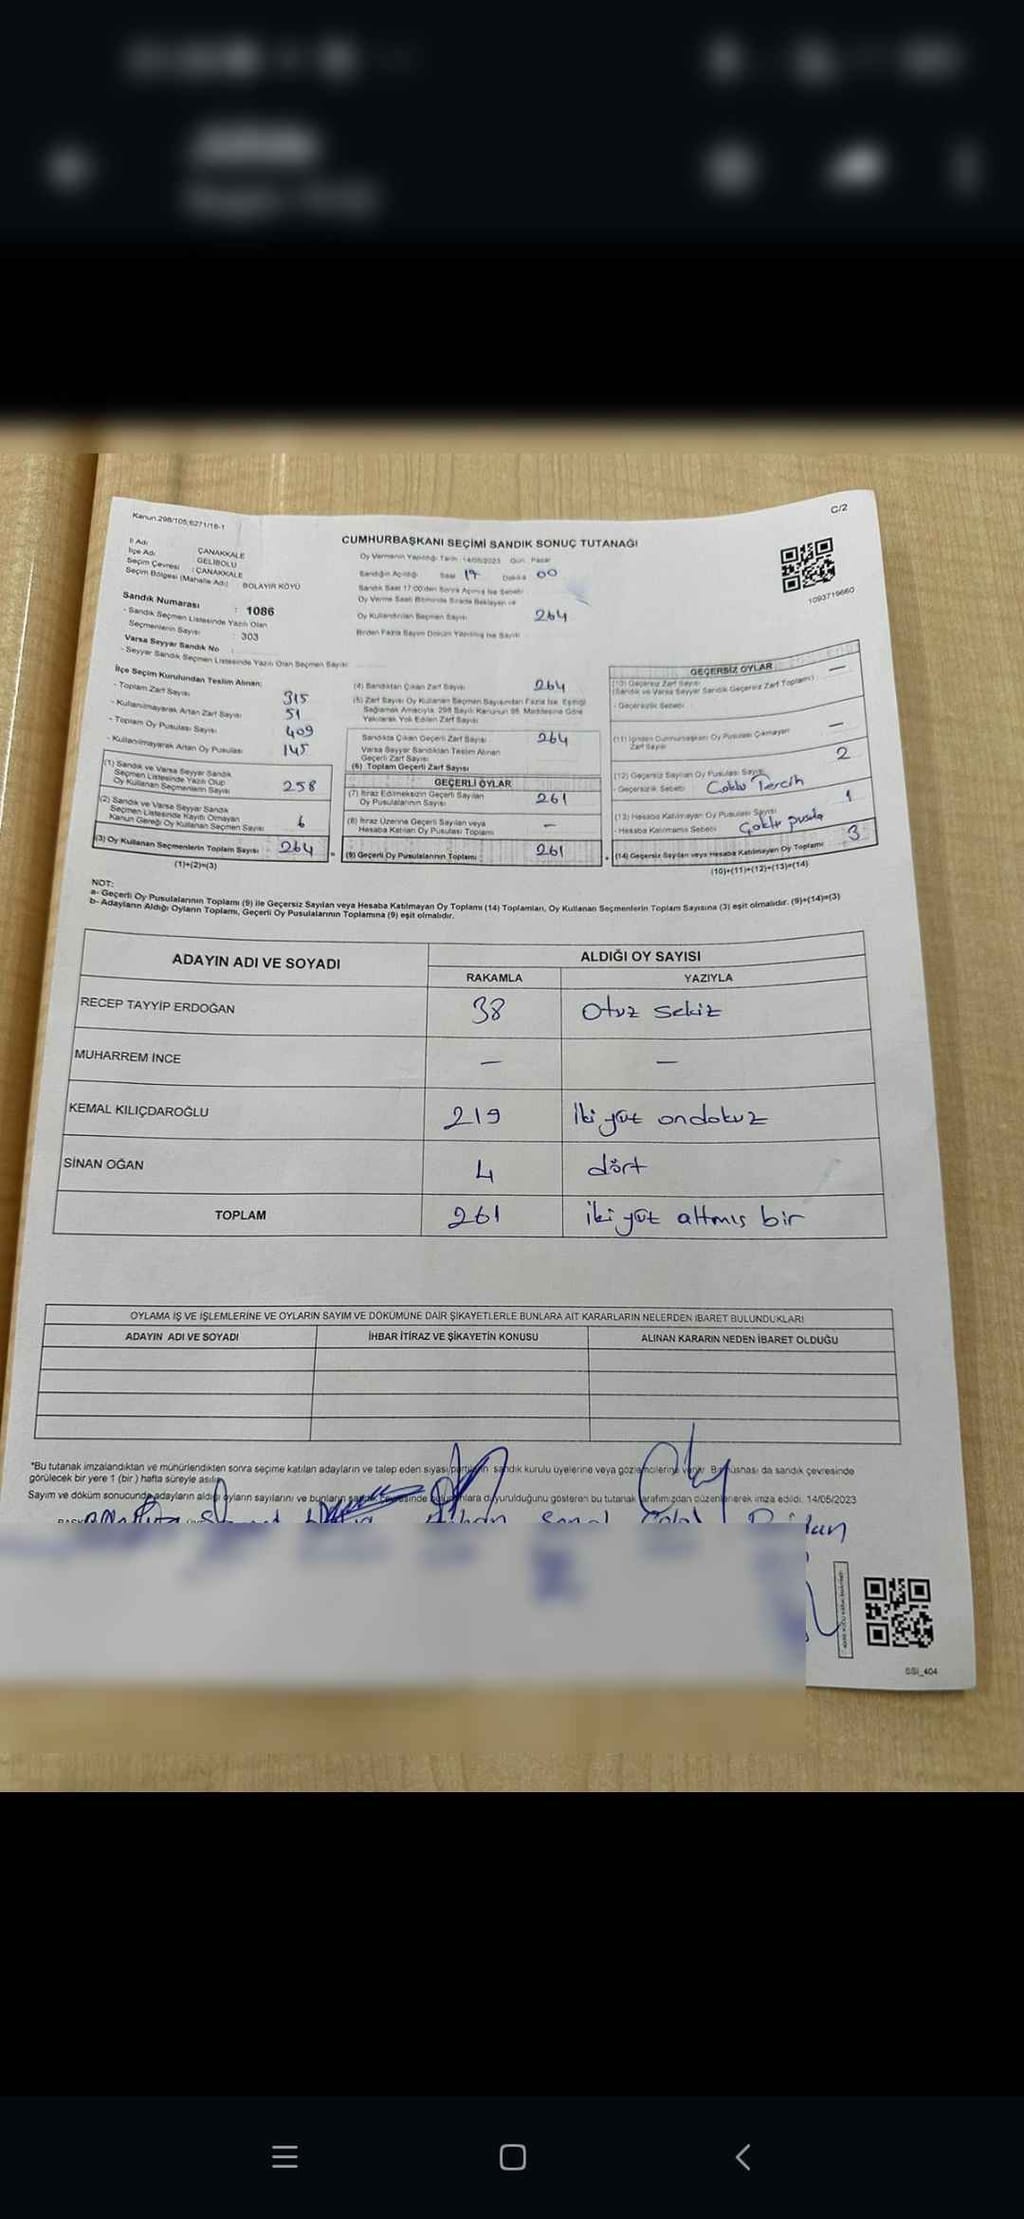 Kanun.298/105;6271/16-1
C/2
CUMHURBAŞKANI SEÇİMİ SANDIK SONUÇ TUTANAĞI
İl Adı : ÇANAKKALE
İlçe Adı : GELİBOLU
Seçim Çevresi : ÇANAKKALE
Seçim Bölgesi (Mahalle Adı) : BOLAYIR KÖYÜ
Sandık Numarası : 1086
- Sandık Seçmen Listesinde Yazılı Olan
Seçmenlerin Sayısı : 303
Varsa Seyyar Sandık No
- Seyyar Sandık Seçmen Listesinde Yazılı Olan Seçmen Sayısı
Oy Vermenin Yapıldığı Tarih : 14/05/2023 Gün : Pazar
Sandığın Açıldığı Saat 17 Dakika 00
Sandık Saat 17:00'den Sonra Açılmış İse Sebebi
Oy Verme Saati Bitiminde Sırada Bekleyen ve
Oy Kullandırılan Seçmen Sayısı 264
Birden Fazla Sayım Döküm Yapılmış İse Sayısı
1093719660
İlçe Seçim Kurulundan Teslim Alınan:
- Toplam Zarf Sayısı 315
- Kullanılmayarak Artan Zarf Sayısı 51
- Toplam Oy Pusulası Sayısı 409
- Kullanılmayarak Artan Oy Pusulası 145
(1) Sandık ve Varsa Seyyar Sandık
Seçmen Listesinde Yazılı Olup
Oy Kullanan Seçmenlerin Sayısı 258
(2) Sandık ve Varsa Seyyar Sandık
Seçmen Listesinde Kayıtlı Olmayan
Kanun Gereği Oy Kullanan Seçmen Sayısı 6
(3) Oy Kullanan Seçmenlerin Toplam Sayısı : 264
(1)+(2)=(3)
(4) Sandıktan Çıkan Zarf Sayısı 264
(5) Zarf Sayısı Oy Kullanan Seçmen Sayısından Fazla İse, Eşitliği
Sağlamak Amacıyla, 298 Sayılı Kanunun 98. Maddesine Göre
Yakılarak Yok Edilen Zarf Sayısı
Sandıkta Çıkan Geçerli Zarf Sayısı 264
Varsa Seyyar Sandıktan Teslim Alınan
Geçerli Zarf Sayısı
(6) Toplam Geçerli Zarf Sayısı
GEÇERLİ OYLAR
(7) İtiraz Edilmeksizin Geçerli Sayılan
Oy Pusulalarının Sayısı 261
(8) İtiraz Üzerine Geçerli Sayılan veya
Hesaba Katılan Oy Pusulası Toplamı —
(9) Geçerli Oy Pusulalarının Toplamı : 261
GEÇERSİZ OYLAR
(10) Geçersiz Zarf Sayısı —
(Sandık ve Varsa Seyyar Sandık Geçersiz Zarf Toplamı)
- Geçersizlik Sebebi
(11) İçinden Cumhurbaşkanı Oy Pusulası Çıkmayan
Zarf Sayısı —
(12) Geçersiz Sayılan Oy Pusulası Sayısı 2
- Geçersizlik Sebebi Çoklu Tercih
(13) Hesaba Katılmayan Oy Pusulası Sayısı 1
- Hesaba Katılmama Sebebi Çoklu pusula
(14) Geçersiz Sayılan veya Hesaba Katılmayan Oy Toplamı 3
(10)+(11)+(12)+(13)=(14)
NOT:
a- Geçerli Oy Pusulalarının Toplamı (9) ile Geçersiz Sayılan veya Hesaba Katılmayan Oy Toplamı (14) Toplamları, Oy Kullanan Seçmenlerin Toplam Sayısına (3) eşit olmalıdır. (9)+(14)=(3)
b- Adayların Aldığı Oyların Toplamı, Geçerli Oy Pusulalarının Toplamına (9) eşit olmalıdır.
ADAYIN ADI VE SOYADI
ALDIĞI OY SAYISI
RAKAMLA YAZIYLA
RECEP TAYYİP ERDOĞAN 38 Otuz sekiz
MUHARREM İNCE — —
KEMAL KILIÇDAROĞLU 219 İki yüz ondokuz
SİNAN OĞAN 4 dört
TOPLAM 261 iki yüz altmış bir
OYLAMA İŞ VE İŞLEMLERİNE VE OYLARIN SAYIM VE DÖKÜMÜNE DAİR ŞİKAYETLERLE BUNLARA AİT KARARLARIN NELERDEN İBARET BULUNDUKLARI
ADAYIN ADI VE SOYADI İHBAR İTİRAZ VE ŞİKAYETİN KONUSU ALINAN KARARIN NEDEN İBARET OLDUĞU
*Bu tutanak imzalandıktan ve mühürlendikten sonra seçime katılan adayların ve talep eden siyasi partilerin sandık kurulu üyelerine veya gözlemcilerine verilir. Bir nüshası da sandık çevresinde
görülecek bir yere 1 (bir) hafta süreyle asılır.
Sayım ve döküm sonucunda adayların aldığı oyların sayılarını ve bunların sandık çevresinde bulunanlara duyurulduğunu gösteren bu tutanak tarafımızdan düzenlenerek imza edildi. 14/05/2023
SSI_404